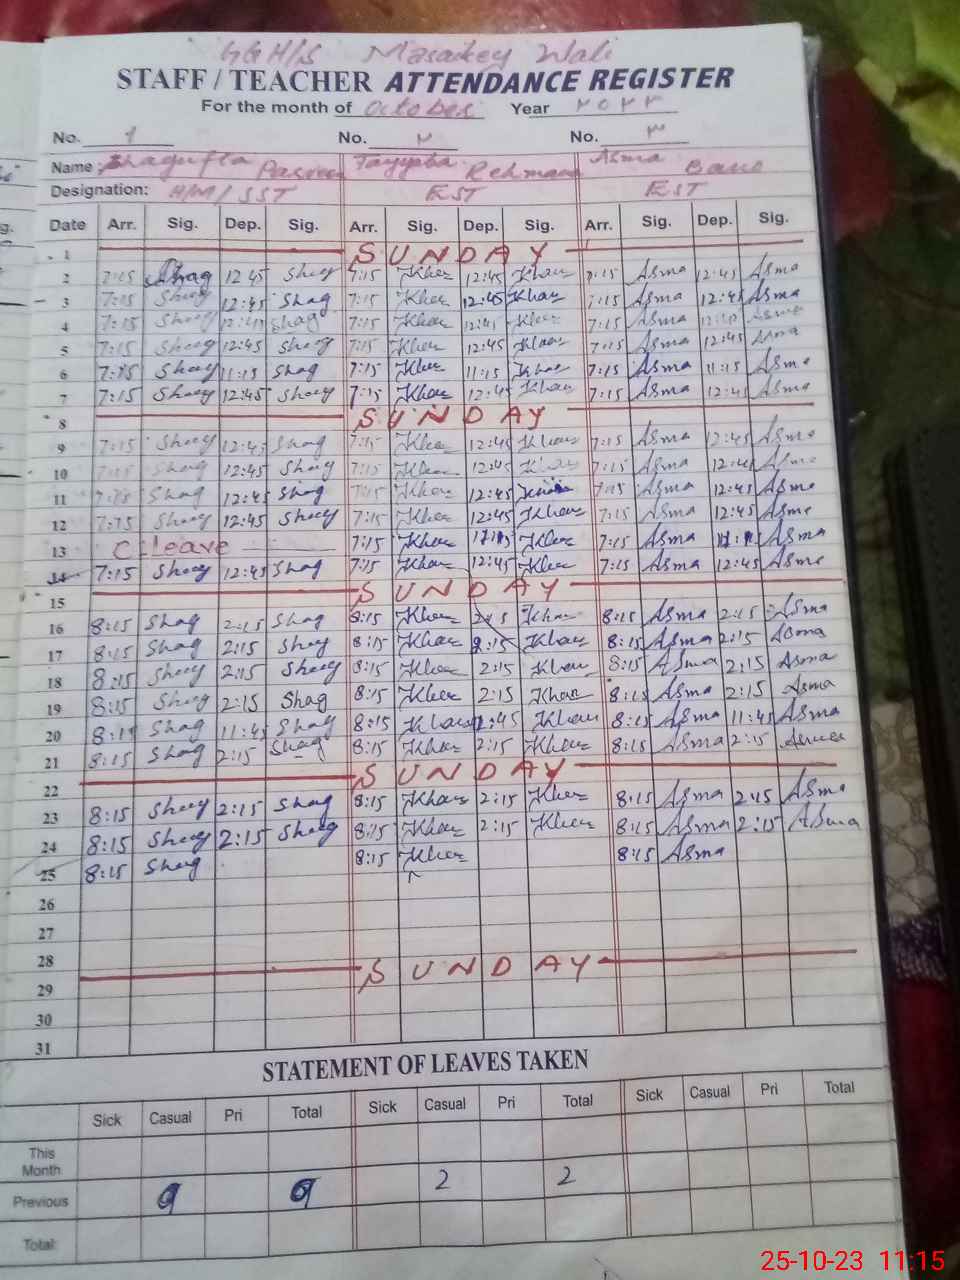 GGH/S Masakey Wali
STAFF / TEACHER ATTENDANCE REGISTER
For the month of October Year ۲۰۲۳
No. ۱ No. ۲ No. ۳
Name Shagufta Parveen Tayyaba Rehman Asma Bano
Designation: H/M/SST EST EST
Date Arr. Sig. Dep. Sig. Arr. Sig. Dep. Sig. Arr. Sig. Dep. Sig.
1 SUNDAY
2 7:15 Shag 12:45 Shag 7:15 Khan 12:45 Khan 7:15 Asma 12:45 Asma
3 7:15 Shag 12:45 Shag 7:15 Khan 12:45 Khan 7:15 Asma 12:45 Asma
4 7:15 Shag 12:45 Shag 7:15 Khan 12:45 Khan 7:15 Asma Asma
5 7:15 Shag 12:45 Shag 7:15 Khan 12:45 Khan 7:15 Asma 12:45 Asma
6 7:15 Shag 11:15 Shag 7:15 Khan 11:15 Khan 7:15 Asma 11:15 Asma
7 7:15 Shag 12:45 Shag 7:15 Khan 12:45 Khan 7:15 Asma 12:45 Asma
8 SUNDAY
9 7:15 Shag 12:45 Shag 7:15 Khan 12:45 Khan 7:15 Asma 12:45 Asma
10 7:15 Shag 12:45 Shag 7:15 Khan 12:45 Khan 7:15 Asma 12:45 Asma
11 7:15 Shag 12:45 Shag 7:15 Khan 12:45 Khan 7:15 Asma 12:45 Asma
12 7:15 Shag 12:45 Shag 7:15 Khan 12:45 Khan 7:15 Asma 12:45 Asma
13 C leave 7:15 Khan Khan 7:15 Asma Asma
14 7:15 Shag 12:45 Shag 7:15 Khan 12:45 Khan 7:15 Asma 12:45 Asma
15 SUNDAY
16 8:15 Shag 2:15 Shag 8:15 Khan 2:15 Khan 8:15 Asma 2:15 Asma
17 8:15 Shag 2:15 Shag 8:15 Khan 2:15 Khan 8:15 Asma 2:15 Asma
18 8:15 Shag 2:15 Shag 8:15 Khan 2:15 Khan 8:15 Asma 2:15 Asma
19 8:15 Shag 2:15 Shag 8:15 Khan 2:15 Khan 8:15 Asma 2:15 Asma
20 8:15 Shag 11:45 Shag 8:15 Khan 11:45 Khan 8:15 Asma 11:45 Asma
21 8:15 Shag 2:15 Shag 8:15 Khan 2:15 Khan 8:15 Asma 2:15 Asma
22 SUNDAY
23 8:15 Shag 2:15 Shag 8:15 Khan 2:15 Khan 8:15 Asma 2:15 Asma
24 8:15 Shag 2:15 Shag 8:15 Khan 2:15 Khan 8:15 Asma 2:15 Asma
25 8:15 Shag 8:15 Khan 8:15 Asma
26
27
28
29 SUNDAY
30
31
STATEMENT OF LEAVES TAKEN
Sick Casual Pri Total Sick Casual Pri Total Sick Casual Pri Total
This Month
Previous 9 9 2 2
Total:
25-10-23 11:15